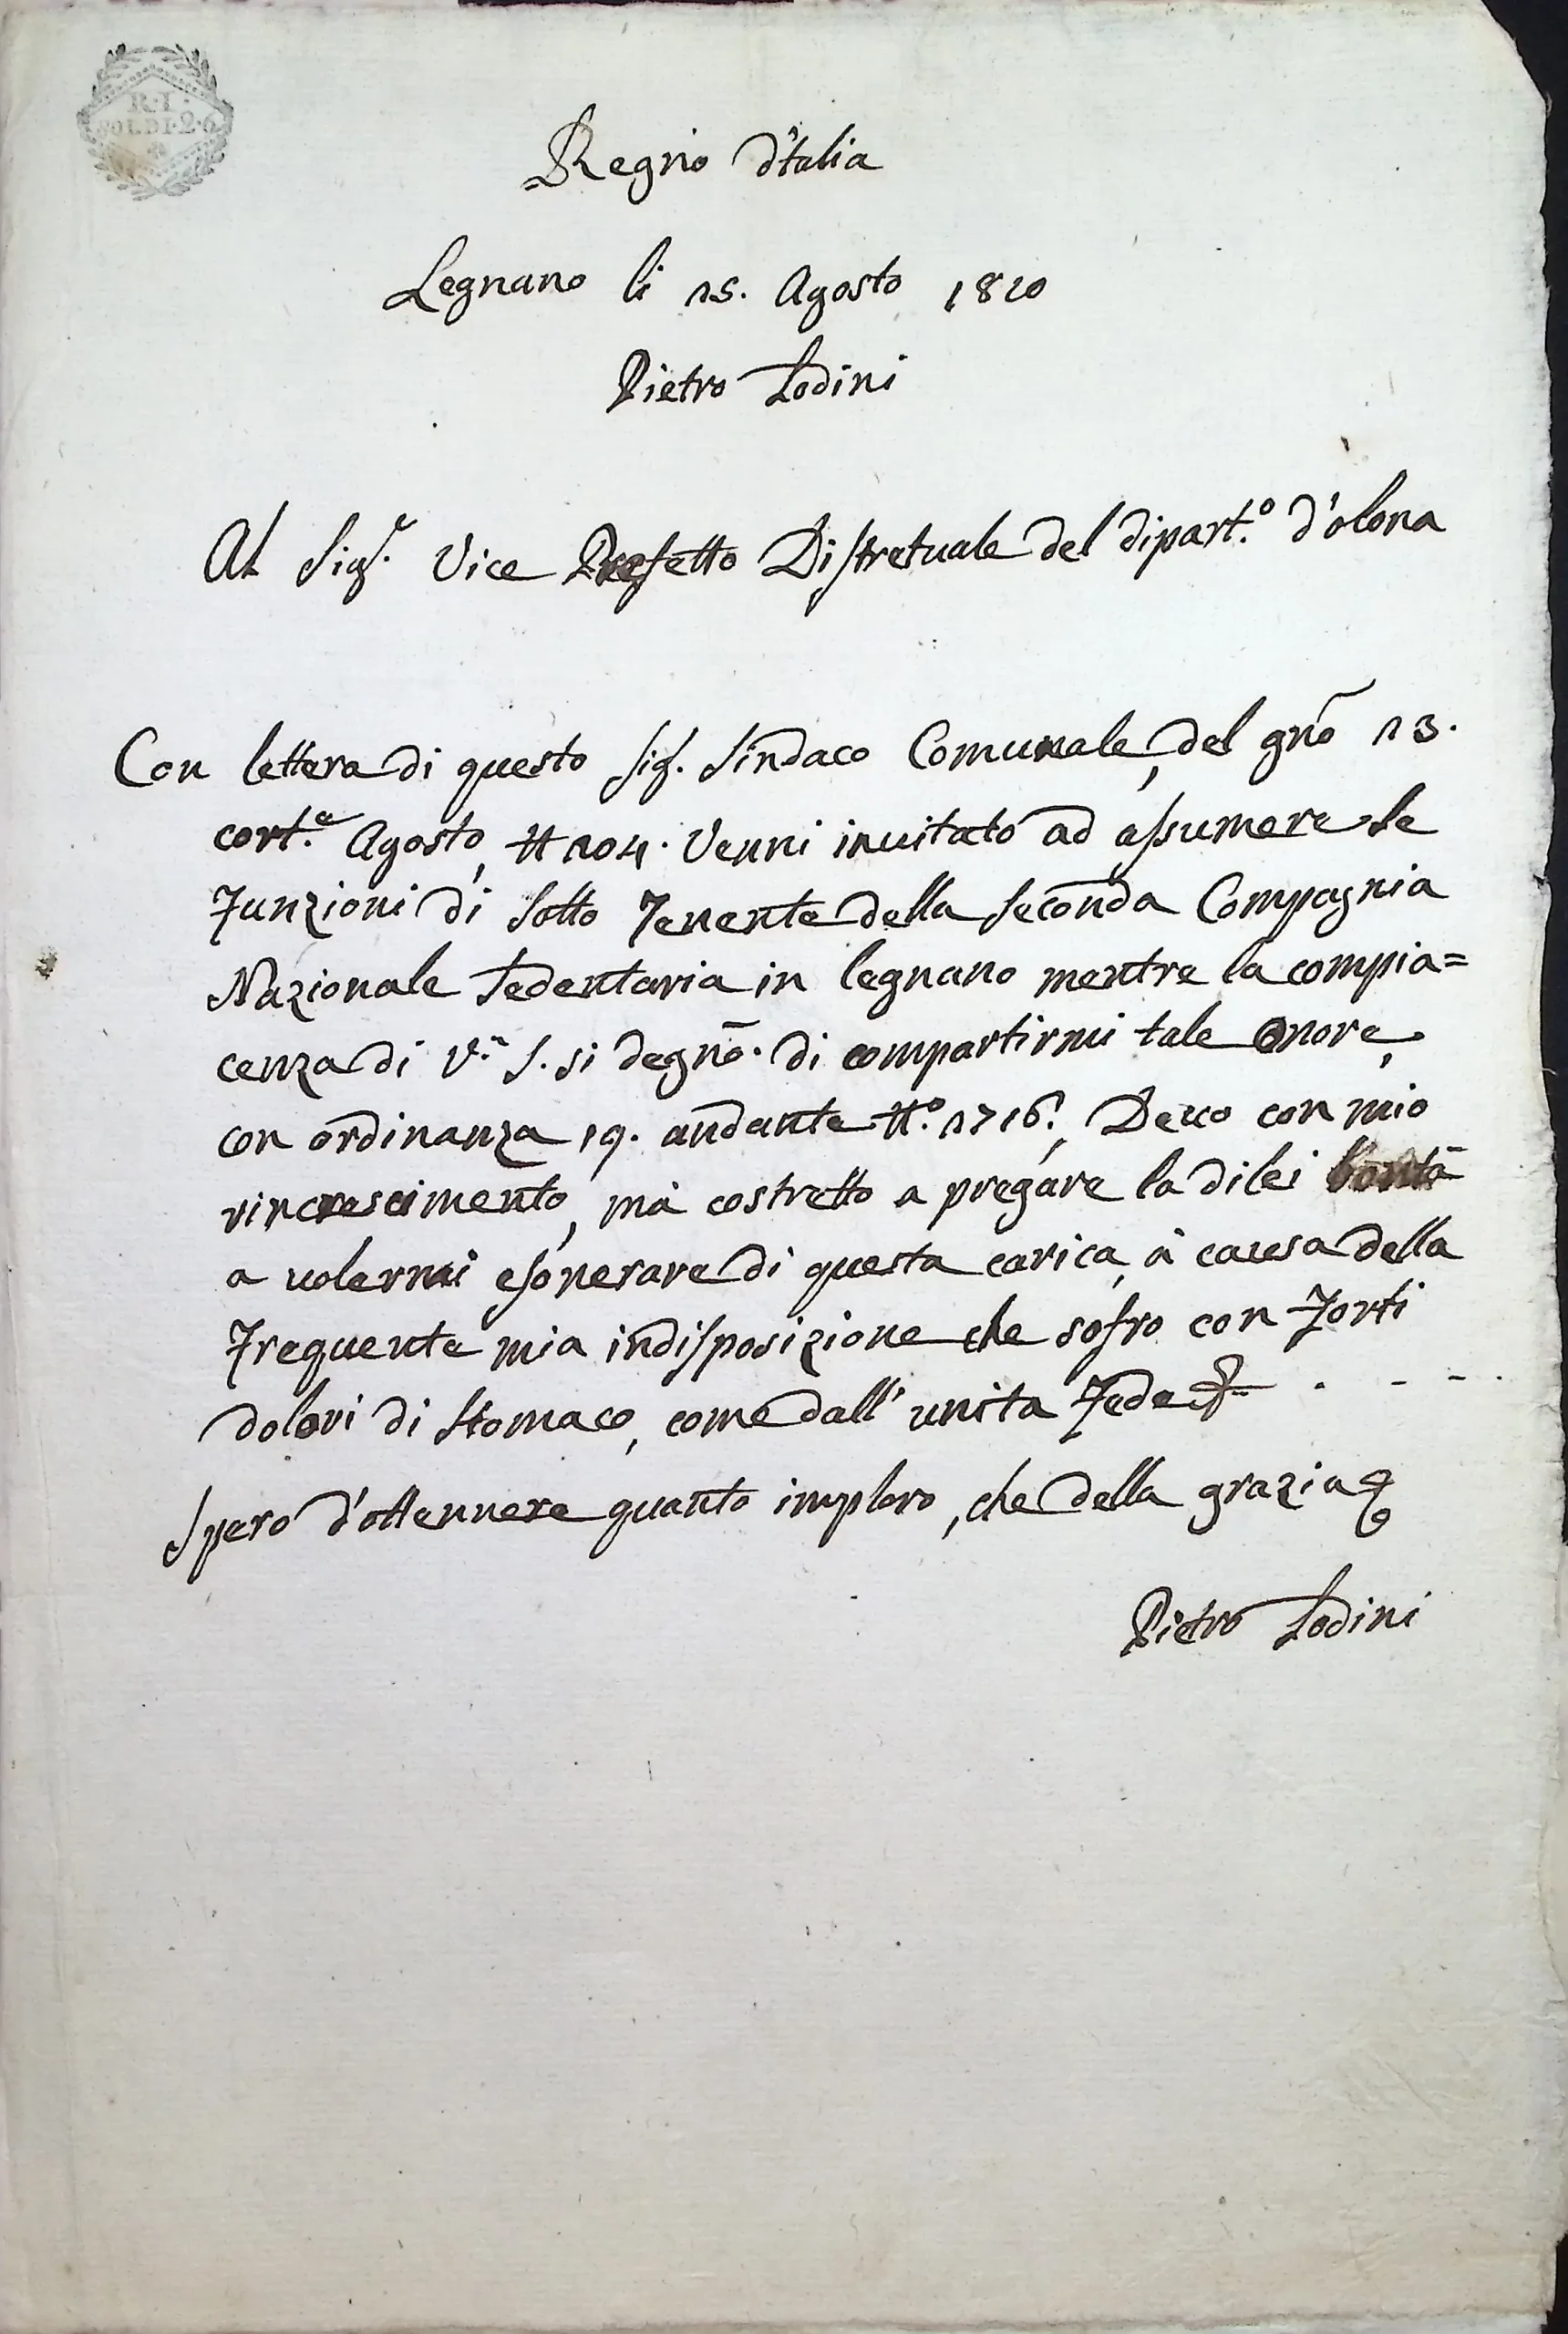 R·I·
SOLDI·2·6
Regno d'Italia
Legnano li 15. Agosto 1810
Pietro Lodini
Al Sigr. Vice Prefetto Distretuale del dipart.o d'olona
Con lettera di questo Sig. Sindaco Comunale, del gno 13.
cort.e Agosto, N 104. Venni invitato ad assumere le
Funzioni di Sotto Tenente della Seconda Compagnia
Nazionale Sedentaria in legnano mentre la compia=
cenza di V.a S. si degnò. di compartirmi tale Onore,
con ordinanza 19. andante N.o 1716., Deuo con mio
rincrescimento, mà costretto a pregare la di lei bontà
a uolermi esonerare di questa carica, à causa della
Frequente mia indisposizione che sofro con Forti
dolori di Stomaco, come dall' unita Fede
Spero d'ottennere quanto imploro, che della grazia
Pietro Lodini